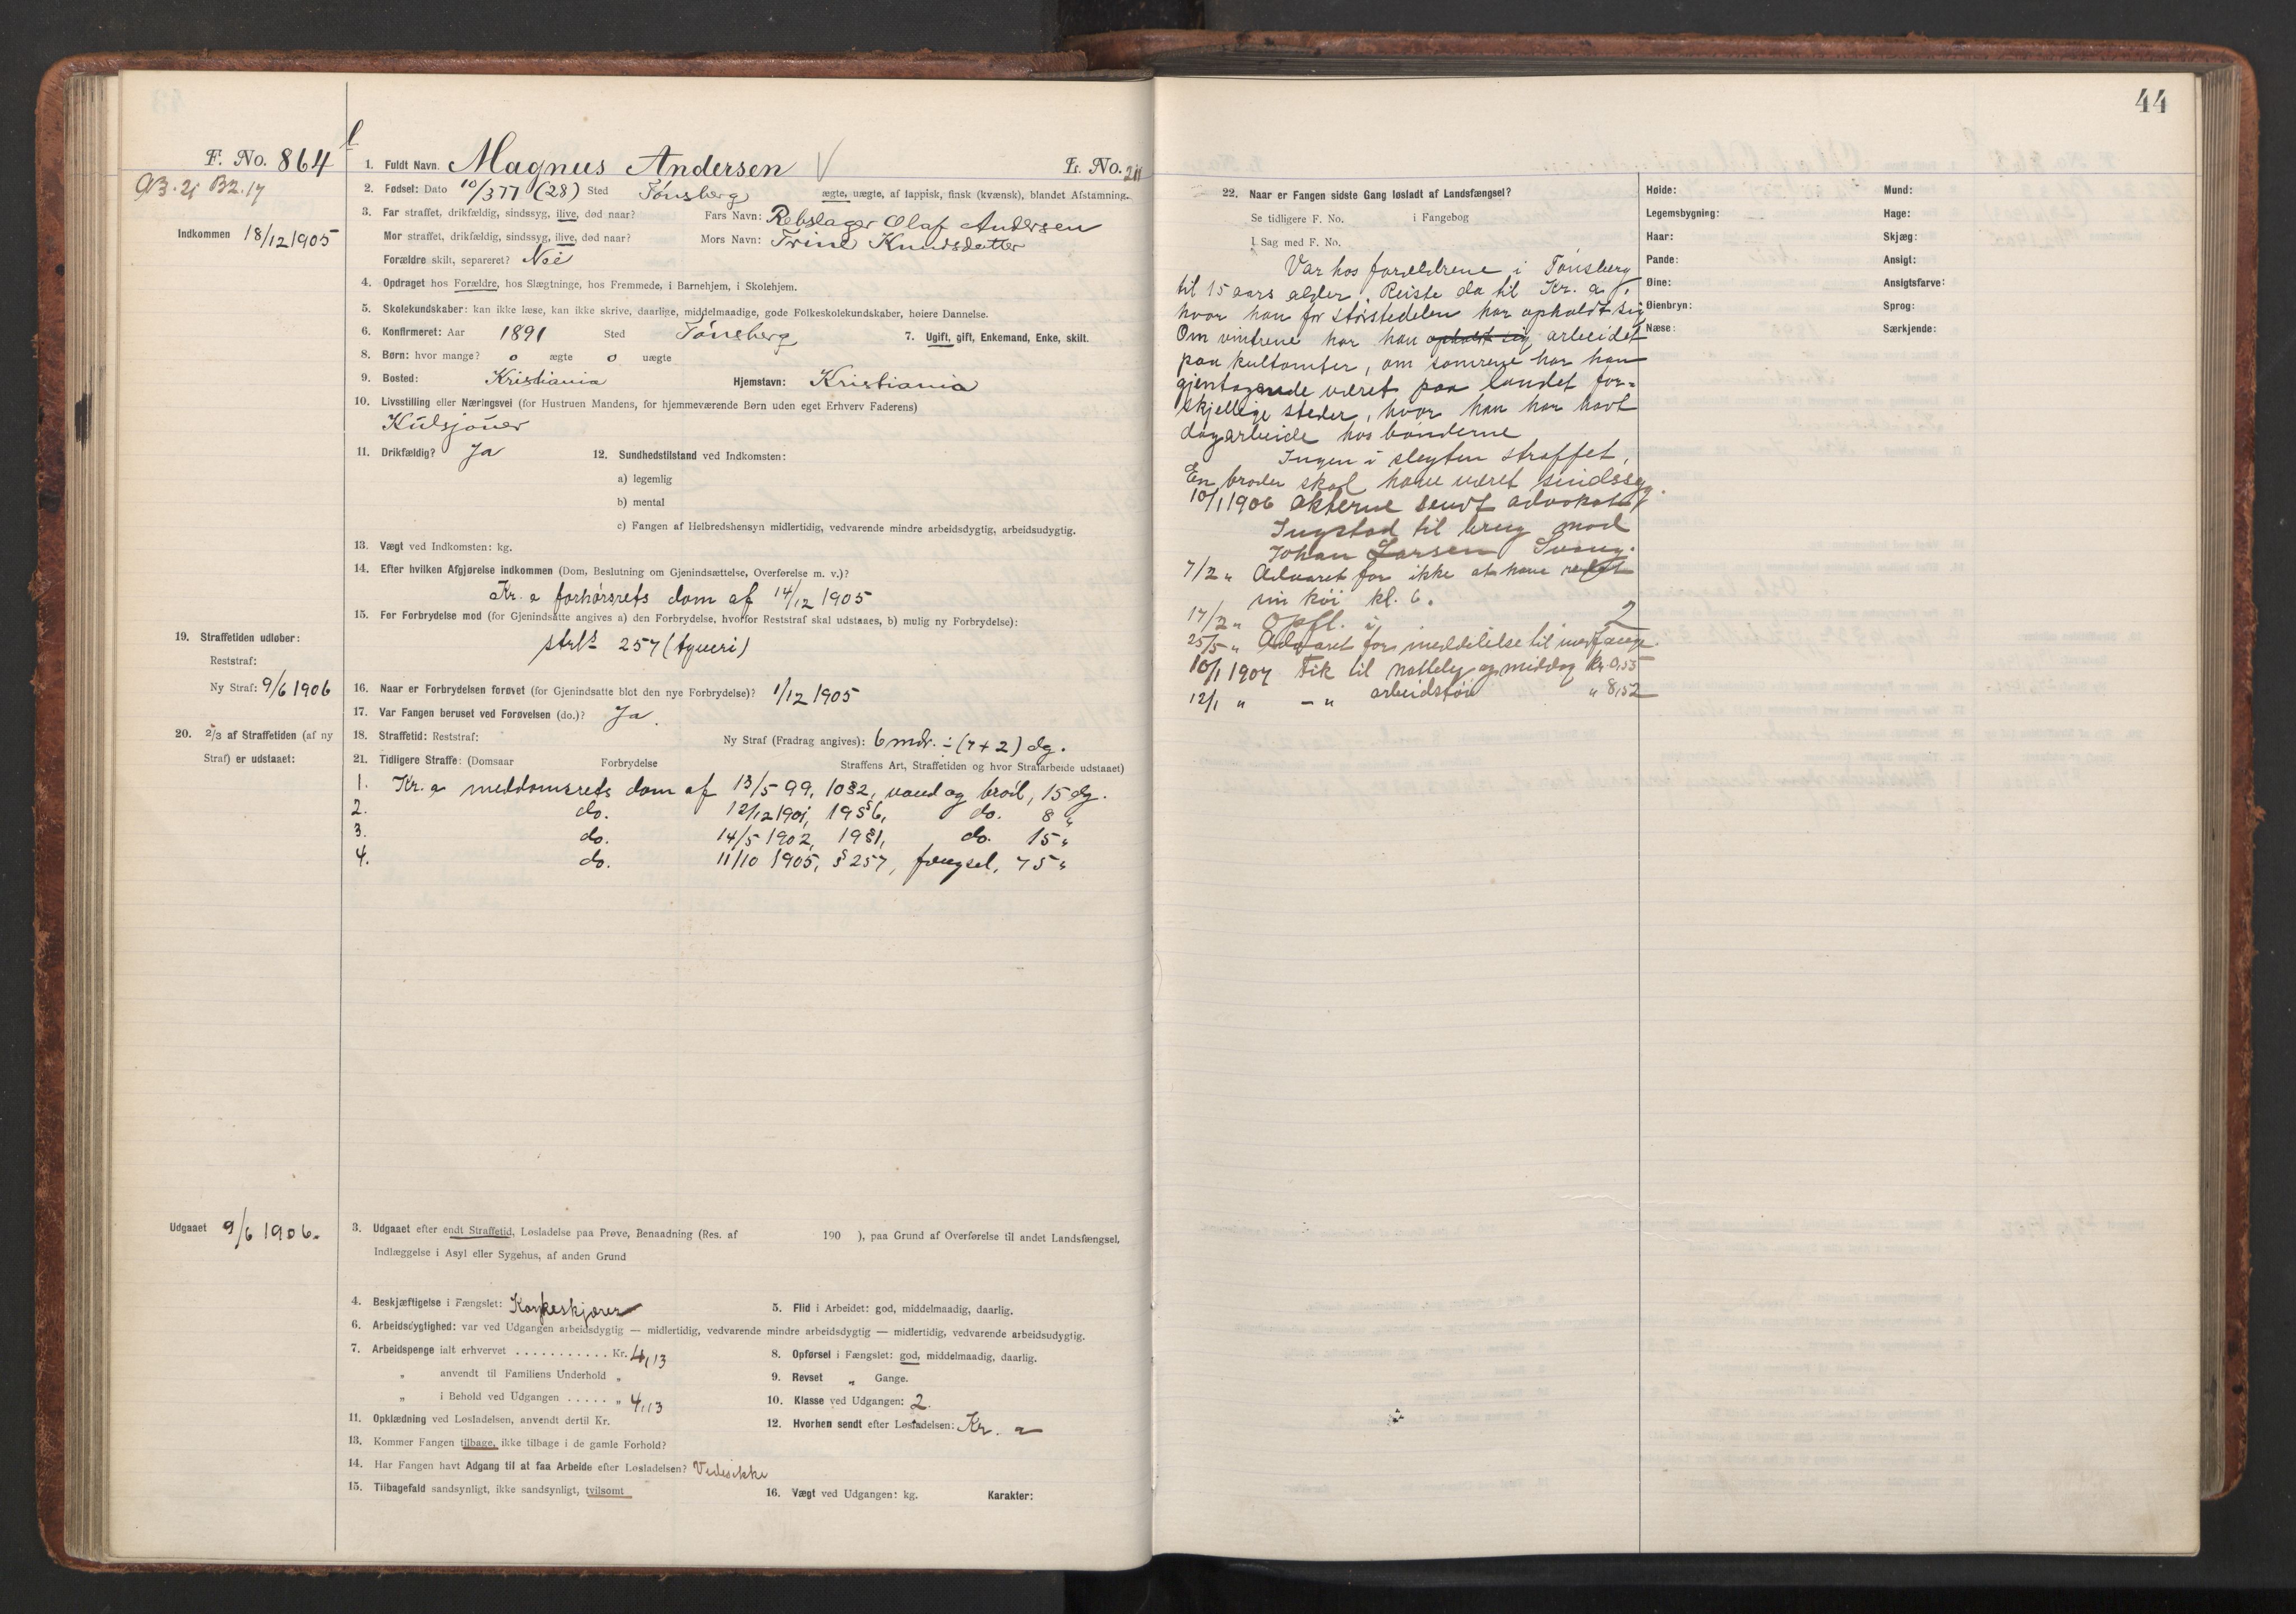 44
F. No. 864
1. Fuldt Navn. Magnus Andersen
L. No. 211
Indkommen 18/12 1905
2. Fødsel: Dato 10/3 77 (28) Sted Tønsberg ægte, uægte, af lappisk, finsk (kvænsk), blandet Afstamning.
3. Far straffet, drikfældig, sindssyg, ilive, død naar? Fars Navn: Rebslager Olaf Andersen
Mor straffet, drikfældig, sindssyg, ilive, død naar? Mors Navn: Trine Knudsdatter
Forældre skilt, separeret? Nei
4. Opdraget hos Forældre, hos Slægtninge, hos Fremmede, i Barnehjem, i Skolehjem.
5. Skolekundskaber: kan ikke læse, kan ikke skrive, daarlige, middelmaadige, gode Folkeskolekundskaber, høiere Dannelse.
6. Konfirmeret: Aar 1891 Sted Tønsberg 7. Ugift, gift, Enkemand, Enke, skilt.
8. Børn: hvor mange? 0 ægte 0 uægte
9. Bosted: Kristiania Hjemstavn: Kristiania
10. Livsstilling eller Næringsvei (for Hustruen Mandens, for hjemmeværende Børn uden eget Erhverv Faderens)
Kulsjouer
11. Drikfældig? Ja 12. Sundhedstilstand ved Indkomsten:
a) legemlig
b) mental
c) Fangen af Helbredshensyn midlertidig, vedvarende mindre arbeidsdygtig, arbeidsudygtig.
13. Vægt ved Indkomsten: kg.
14. Efter hvilken Afgjørelse indkommen (Dom, Beslutning om Gjenindsættelse, Overførelse m. v.)?
Kr. a forhørsrets dom af 14/12 1905
15. For Forbrydelse mod (for Gjenindsatte angives a) den Forbrydelse, hvorfor Reststraf skal udstaaes, b) mulig ny Forbrydelse):
strl§ 257 (tyveri)
19. Straffetiden udløber:
Reststraf:
Ny Straf: 9/6 1906
16. Naar er Forbrydelsen forøvet (for Gjenindsatte blot den nye Forbrydelse)? 1/12 1905
17. Var Fangen beruset ved Forøvelsen (do.)? Ja.
20. 2/3 af Straffetiden (af ny
Straf) er udstaaet:
18. Straffetid: Reststraf: Ny Straf (Fradrag angives): 6 mdr. ÷ (7 + 2) dg.
21. Tidligere Straffe: (Domsaar Forbrydelse Straffens Art, Straffetiden og hvor Strafarbeide udstaaet)
1. Kr. a meddomsrets dom af 13/5 99, 10§2, vand og brød, 15 dg.
2. do. 12/12 1901, 19§6, do. 8 "
3. do. 14/5 1902, 19§1, do. 15 "
4. do. 11/10 1905, § 257, fængsel, 75 "
Udgaaet 9/6 1906.
3. Udgaaet efter endt Straffetid, Løsladelse paa Prøve, Benaadning (Res. af 190 ), paa Grund af Overførelse til andet Landsfængsel,
Indlæggelse i Asyl eller Sygehus, af anden Grund
4. Beskjæftigelse i Fængslet: Korkeskjærer 5. Flid i Arbeidet: god, middelmaadig, daarlig.
6. Arbeidsdygtighed: var ved Udgangen arbeidsdygtig — midlertidig, vedvarende mindre arbeidsdygtig — midlertidig, vedvarende arbeidsudygtig.
7. Arbeidspenge ialt erhvervet ........... Kr. 4,13 8. Opførsel i Fængslet: god, middelmaadig, daarlig.
" anvendt til Familiens Underhold " 9. Revset " Gange.
" i Behold ved Udgangen ..... " 4,13 10. Klasse ved Udgangen: 2.
11. Opklædning ved Løsladelsen, anvendt dertil Kr. 12. Hvorhen sendt efter Løsladelsen: Kr. a
13. Kommer Fangen tilbage, ikke tilbage i de gamle Forhold?
14. Har Fangen havt Adgang til at faa Arbeide efter Løsladelsen? Vides ikke
15. Tilbagefald sandsynligt, ikke sandsynligt, tvilsomt 16. Vægt ved Udgangen: kg. Karakter:
22. Naar er Fangen sidste Gang løsladt af Landsfængsel?
Se tidligere F. No. i Fangebog
I Sag med F. No.
Var hos forældrene i Tønsberg
til 15 aars alder. Reiste da til Kr. a,
hvor han for størstedelen har opholdt sig
Om vintrene har han opholdt sig arbeidet
paa kultomter, om somrene har han
gjentagende været paa landet for-
skjellige steder, hvor han har havt
dagarbeide hos bønderne
Ingen i slegten straffet,
En broder skal have været sindssyg.
10/1 1906 Akterne sendt advokat
Ingstad til brug mod
Johan Larsen Svang.
7/2 " Advaret for ikke at have redet
sin køi kl. 6.
17/2 " Opfl. i 2
25/5 " Advaret for meddelelse til medfange.
10/1 1907 Fik til natteleg og middag kr. 0,55
12/1 " — " arbeidstøi " 8,52
Høide: Mund:
Legemsbygning: Hage:
Haar: Skjæg:
Pande: Ansigt:
Øine: Ansigtsfarve:
Øienbryn: Sprog:
Næse: Særkjende: